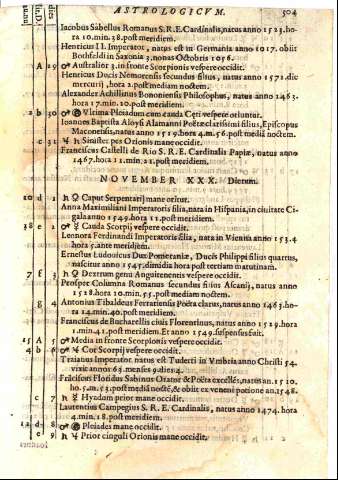 ASTROLOGICVM. 504
Iacobus Sabellus Romanus S. R. E. Cardinalis, natus anno 1523. ho-
ra 10. min. 38. post meridiem.
Henricus II. Imperator, natus est in Germania anno 1017. obiit
Bothfeldi in Saxonia 3. nonas Octobris 1056.
A 29 ♂ Australior 3. in fronte Scorpionis vespere occidit.
Henricus Ducis Nomorensis secundus filius, natus anno 1571. die
mercurij, hora 2. post mediam noctem.
Alexander Achillinus Bononiensis Philosophus, natus anno 1463.
hora 17. min. 20. post meridiem.
2 b 30 Vltima Pleiadum cum cauda Ceti vespere oriuntur.
Ioannes Baptista Aloys Alamanni Poëtæ clarissimi filius, Episcopus
Maconensis, natus anno 1519. hora 4. m. 56. post mediā noctem.
c 31 ♄ ☿ Sinister pes Orionis mane occidit.
Franciscus Castell de Rio S. R. E. Cardinalis Papiæ, natus anno
1467. hora 11. min. 21. post meridiem.
NOVEMBER XXX. Dierum.
10 d 1 ♄ ♀ Caput Serpentarij mane oritur.
Anna Maximiliani Imperatoris filia, nata in Hispania, in ciuitate Ci-
gala anno 1549. hora 11. post meridiem.
e 2 Cauda Scorpij vespere occidit.
Leonora Ferdinandi Imperatoris filia, nata in Vienna anno 153.4
hora 5. ante meridiem.
Ernestus Ludouicus Dux Pomeraniæ, Ducis Philippi filius quartus,
nascitur anno 1545. dimidia hora post tertiam matutinam.
7 f 3 ♄ Dextrum genu Anguitenentis vespere occidit.
Prosper Columna Romanus secundus filius Ascanij, natus anno
1528. hora 10. min. 55. post mediam noctem.
g 4 Antonius Tibaldeus Ferrariensis Poëta clarus, natus anno 1463. ho-
ra 14. min. 40. post meridiem.
Franciscus de Bucharellis ciuis Florentinus, natus anno 1519. hora
1. min. 41. post meridiem. Et anno 1549. suspensus fuit.
15 A 5 ♂ Media in fronte Scorpionis vespere occidit.
4 b 6 ♂ ♃ Cor Scorpij vespere occidit.
Traianus Imperator natus est Tuderti in Vmbria anno Christi 54.
vixit annos 63. menses 9. dies 4.
Frāciscus Floridus Sabinus Orator & Poëta excellēs, natus an. 1510.
ho. 5. m. 51. post mediā noctē, & obiit ex veneni potione an. 1548.
c 7 ♄ Hyadum prior mane occidit.
Laurentius Campegius S. R. E. Cardinalis, natus anno 1474. hora
4. min. 18. post meridiem.
12 d 8 Pleiades mane occidit.
e 9 ♄ ♃ Prior cinguli Orionis mane occidit.